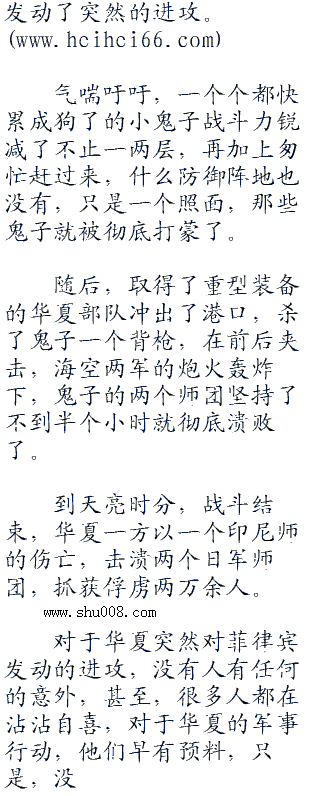 发动了突然的进攻。
(www.hcihci66.com)
气喘吁吁，一个个都快
累成狗了的小鬼子战斗力锐
减了不止一两层，再加上匆
忙赶过来，什么防御阵地也
没有，只是一个照面，那些
鬼子就被彻底打蒙了。
随后，取得了重型装备
的华夏部队冲出了港口，杀
了鬼子一个背枪，在前后夹
击，海空两军的炮火轰炸
下，鬼子的两个师团坚持了
不到半个小时就彻底溃败
了。
到天亮时分，战斗结
束，华夏一方以一个印尼师
的伤亡，击溃两个日军师
团，抓获俘虏两万余人。
www.shu008.com
对于华夏突然对菲律宾
发动的进攻，没有人有任何
的意外，甚至，很多人都在
沾沾自喜，对于华夏的军事
行动，他们早有预料，只
是，没